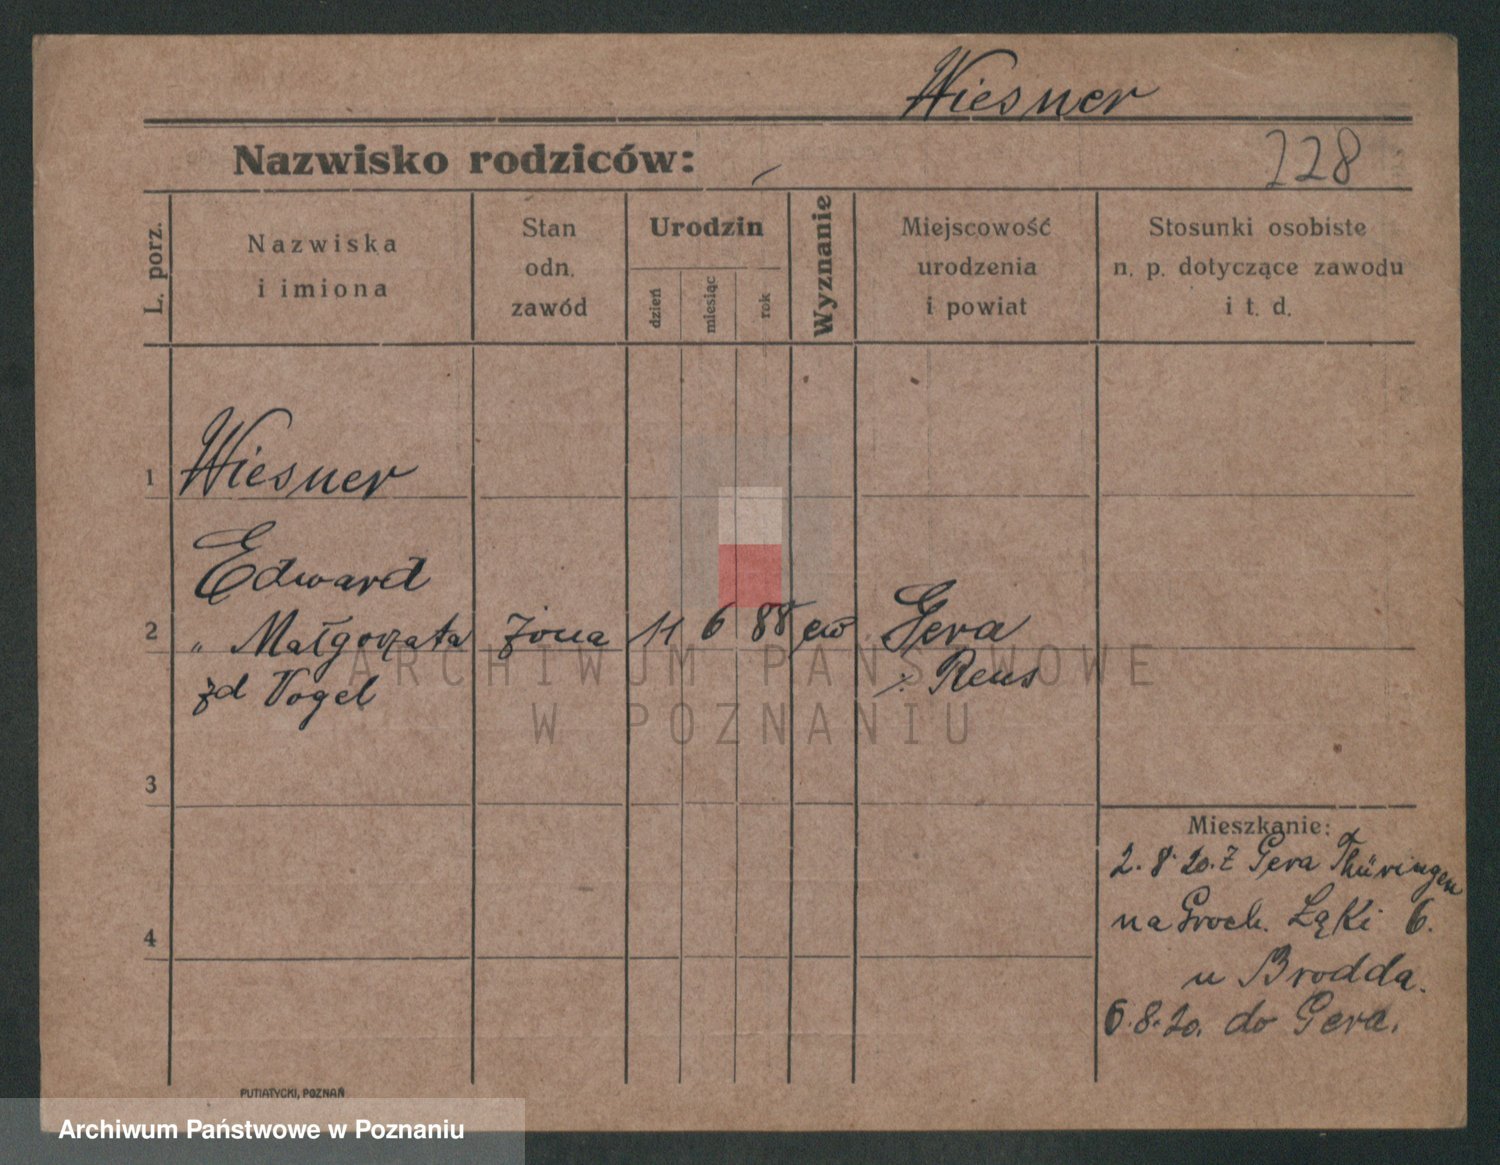 Wiesner
Nazwisko rodziców:
228
L. porz.
Nazwiska
i imiona
Stan
odn.
zawód
Urodzin
dzień
miesiąc
rok
Wyznanie
Miejscowość
urodzenia
i powiat
Stosunki osobiste
n. p. dotyczące zawodu
i t. d.
1 Wiesner
Edward
2 " Małgorzata żona 11 6 88 ew Gera
żd Vogel
Reus
3
4
Mieszkanie:
2.8.20. z Gera Thüringen
na Groch. Łąki 6.
u Brodda.
6.8.20. do Gera.
PUTIATYCKI, POZNAŃ
ARCHIWUM PAŃSTWOWE
W POZNANIU
Archiwum Państwowe w Poznaniu